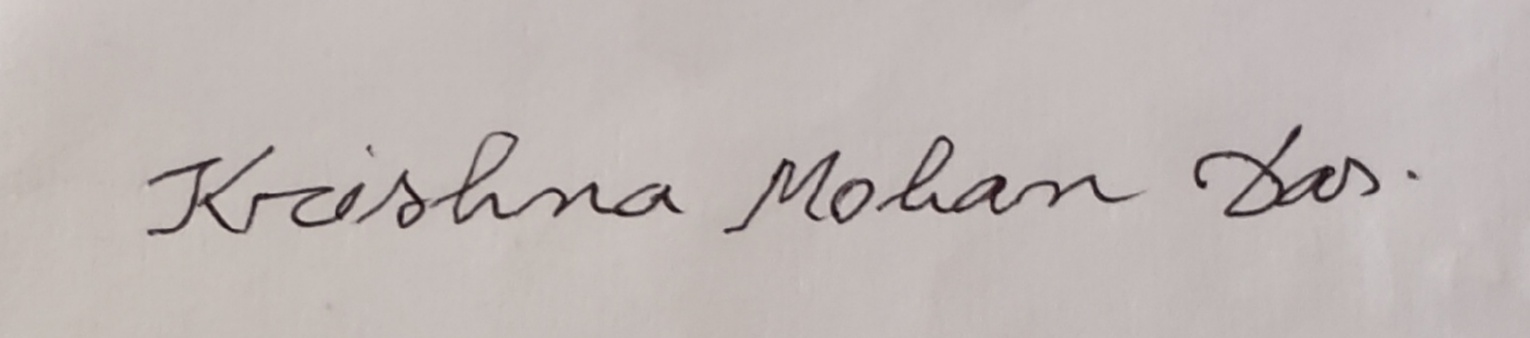 Krishna Mohan Das.